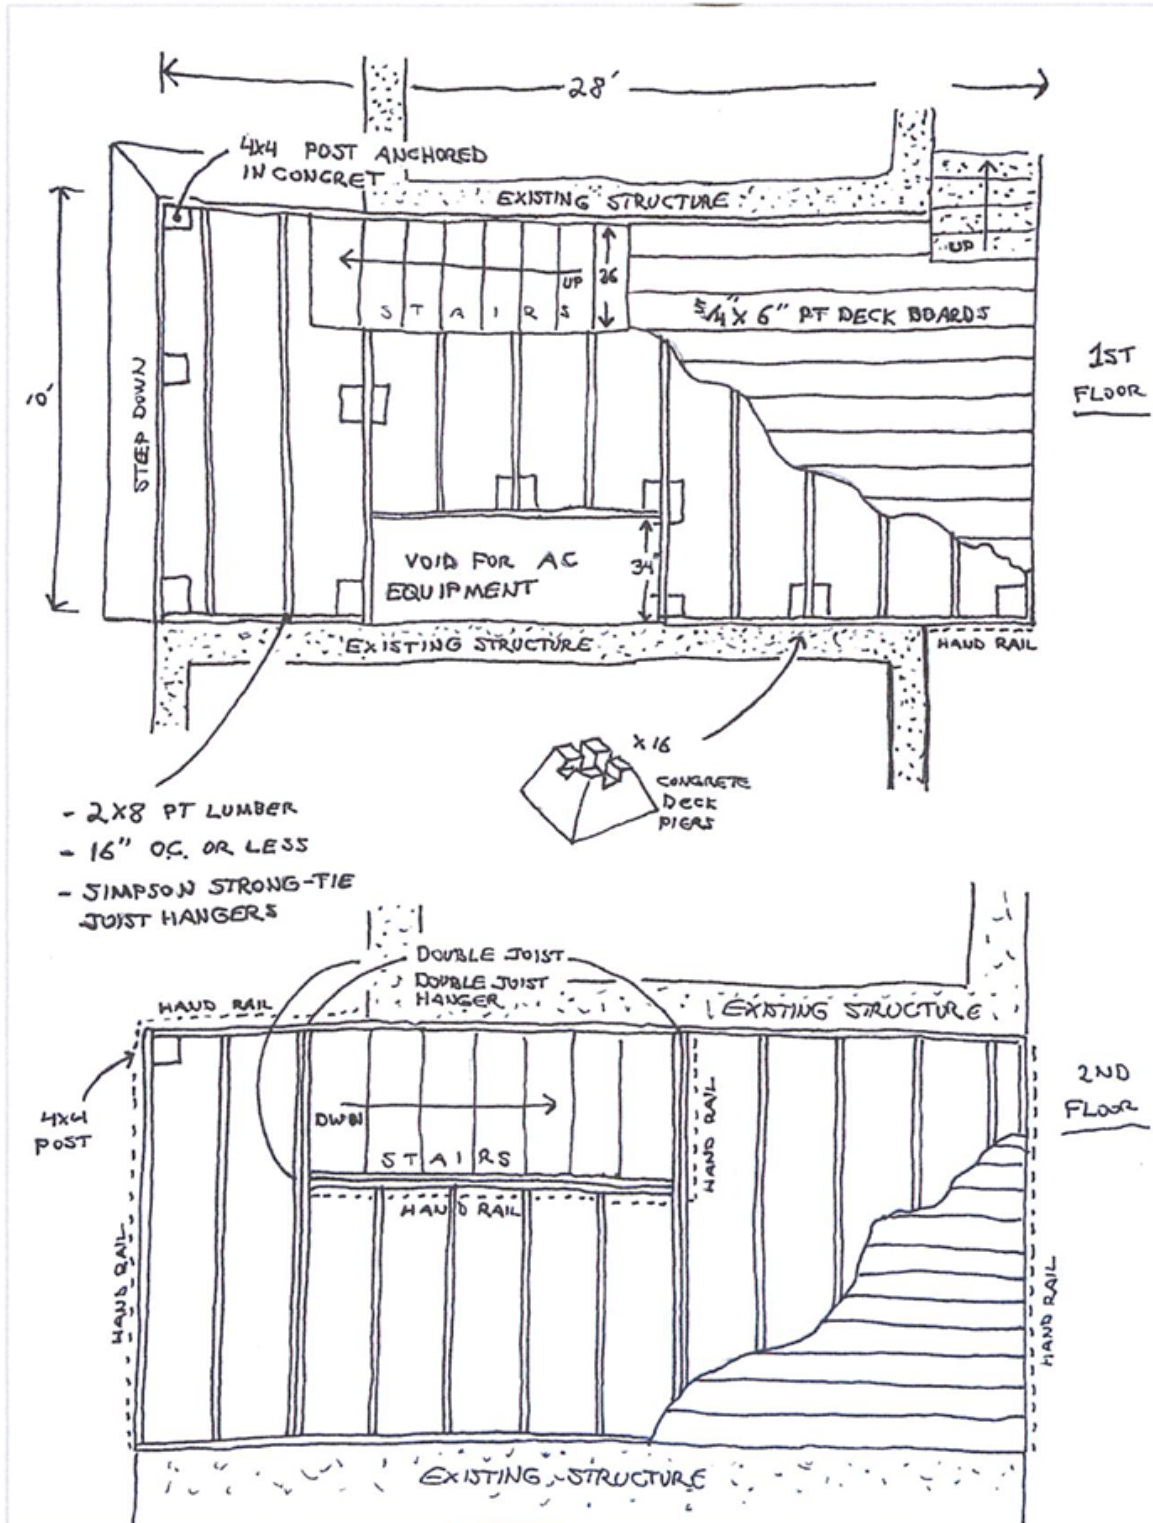 28'
4X4 POST ANCHORED
IN CONCRET
EXISTING STRUCTURE
UP
UP
26
STAIRS
5/4"X 6" PT DECK BOARDS
1ST
FLOOR
10'
STEP DOWN
VOID FOR AC
EQUIPMENT
34"
EXISTING STRUCTURE
HAND RAIL
X 16
CONCRETE
DECK
PIERS
- 2X8 PT LUMBER
- 16" O.C. OR LESS
- SIMPSON STRONG-TIE
JOIST HANGERS
DOUBLE JOIST
DOUBLE JOIST
HANGER
HAND RAIL
EXISTING STRUCTURE
2ND
FLOOR
4X4
POST
DWN
STAIRS
HAND RAIL
HAND RAIL
HAND RAIL
HAND RAIL
EXISTING STRUCTURE